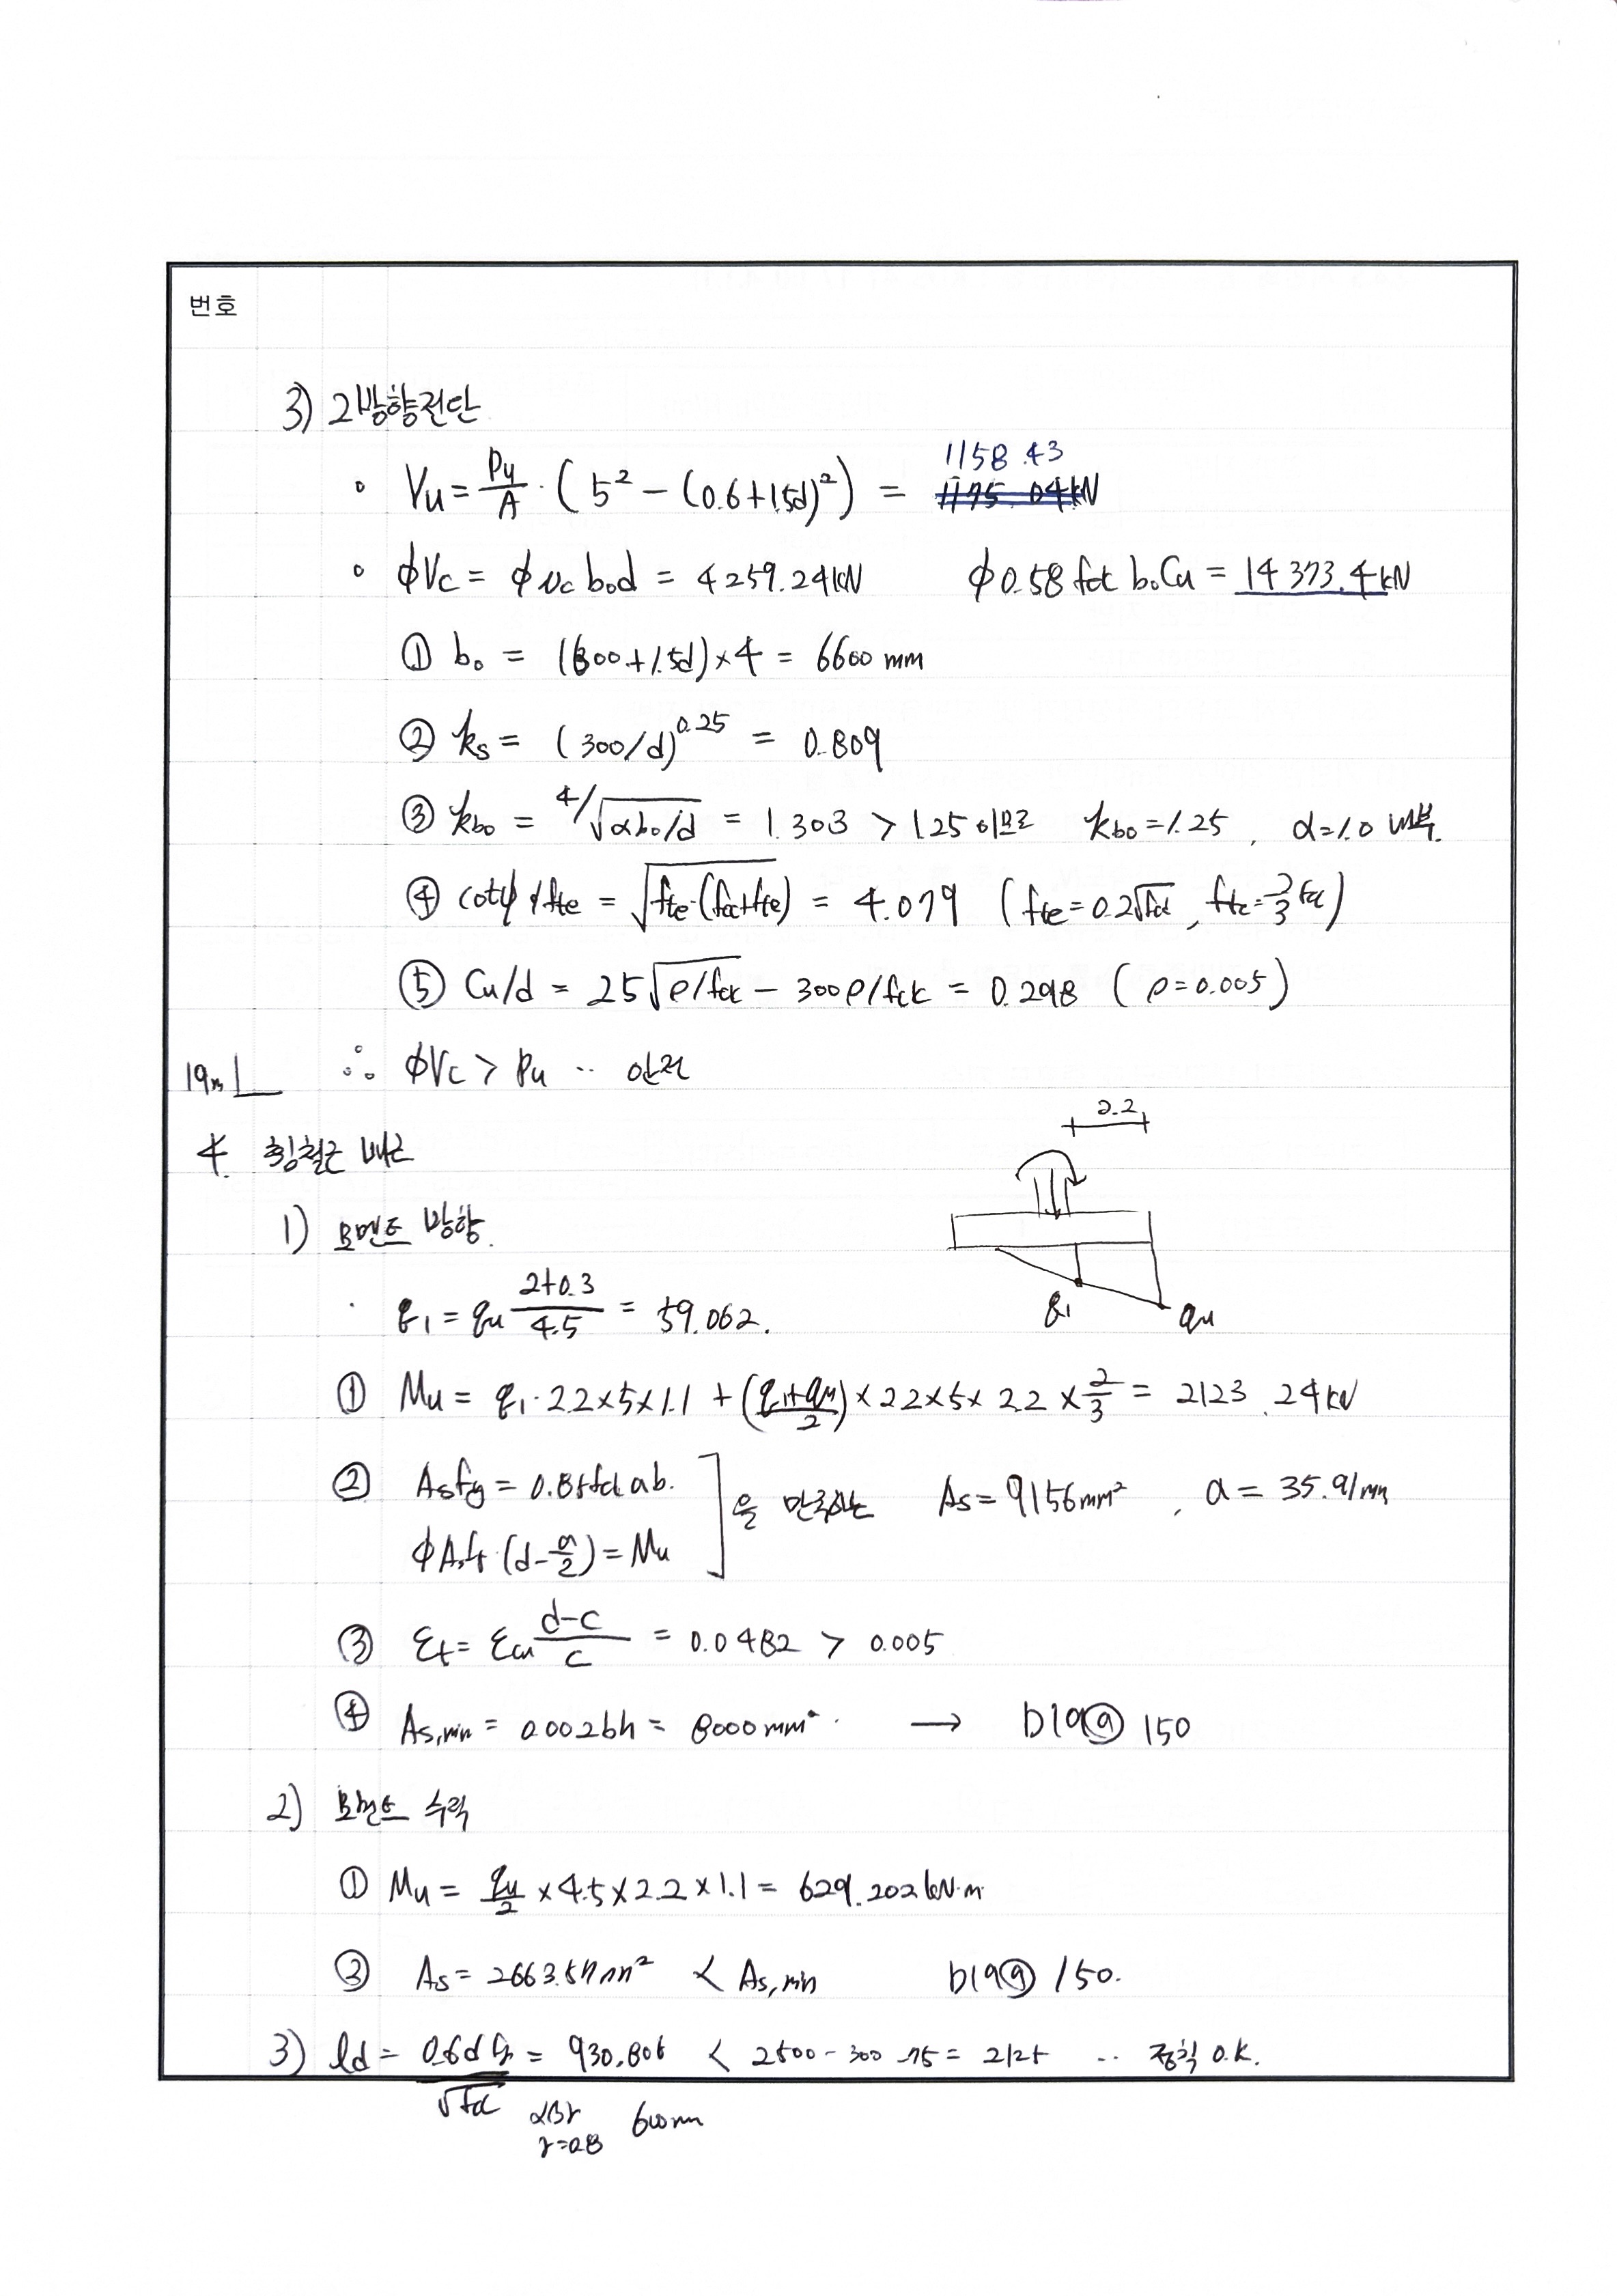 번호
3) 2방향전단
• Vu = Pu/A · (5² - (0.6+1.5d)²) = 1158.43 kN
• φVc = φ vc b₀d = 4259.24kN φ0.58 fck b₀Cu = 14373.4kN
① b₀ = (600+1.5d)×4 = 6600 mm
② ks = (300/d)^0.25 = 0.809
③ kbo = ⁴/√αb₀/d = 1.303 > 1.25 이므로 kbo=1.25, α=1.0 내부.
④ cotψ fte = √fte·(fcc+fte) = 4.079 (fte=0.2√fck, ftc=2/3 fck)
⑤ Cu/d = 25√ρ/fck - 300ρ/fck = 0.298 (ρ=0.005)
∴ φVc > Pu ∴ 안전
4. 휨철근 배근
2.2
1) 모멘트 방향.
· q₁ = qu (2+0.3)/4.5 = 59.062.
q₁ qu
① Mu = q₁·2.2×5×1.1 + ((q₁+qu)/2)×2.2×5×2.2×2/3 = 2123.24kN
② Asfy = 0.85fck ab. ]을 만족하는 As = 9156mm², a = 35.91mm
φAsfy(d-a/2) = Mu
③ εt = εcu (d-c)/c = 0.0482 > 0.005
④ As,min = 0.002bh = 8000mm². → D19@150
2) 모멘트 수직
① Mu = qu/2 ×4.5×2.2×1.1 = 629.202kN·m
② As = 2663.57mm² < As,min D19@150.
3) ld = 0.6dfy/√fck = 930.805 < 2500-300-75 = 2125 ∴ 정착 O.K.
αβγ 600mm
γ=0.8